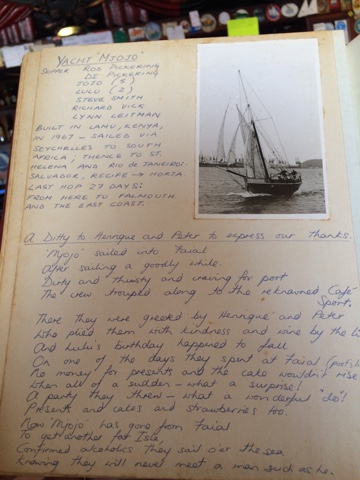 YACHT "MJOJO"
SKIPPER ROB PICKERING
DI PICKERING
JOJO (5)
LULU (2)
STEVE SMITH
RICHARD VICK
LYNN LEITMAN
BUILT IN LAMU, KENYA,
IN 1967 - SAILED VIA
SEYCHELLES TO SOUTH
AFRICA; THENCE TO ST.
HELENA AND RIO DE JANEIRO-
SALVADOR, RECIFE → HORTA.
LAST HOP 27 DAYS:
FROM HERE TO FALMOUTH.
AND THE EAST COAST.
A Ditty to Henrique and Peter to express our thanks.
'Mjojo' sailed into Faial
After sailing a goodly while.
Dirty and thirsty and craving for port
The crew trouped along to the reknowned Café
Sport.
There they were greeted by Henrique and Peter
Who plied them with kindness and wine by the
And Lulu's birthday happened to fall
On one of the days they spent at Faial
No money for presents and the cake wouldn't rise
When all of a sudden - what a surprise!
A party they threw - what a wonderful "do"!
Presents and cakes and strawberries too.
Now 'Mjojo' has gone from Faial
To get another far Isle,
Confirmed alcoholics they sail o'er the sea
Knowing they will never meet a man such as he.